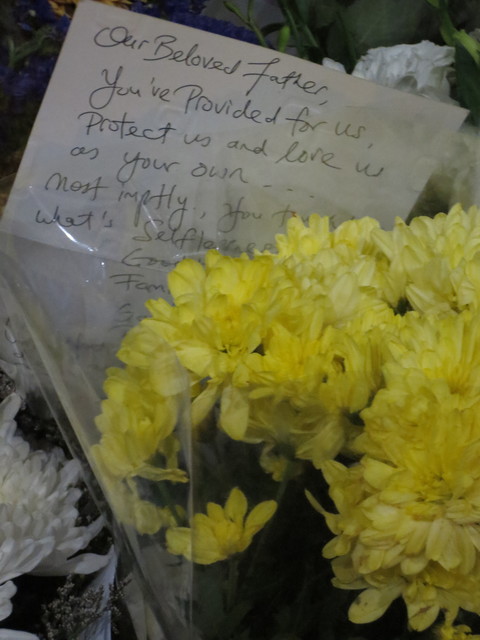 Our Beloved Father,
You've Provided for us,
Protect us and love us
as your own ....
Most imptly, you
what's Selflessness